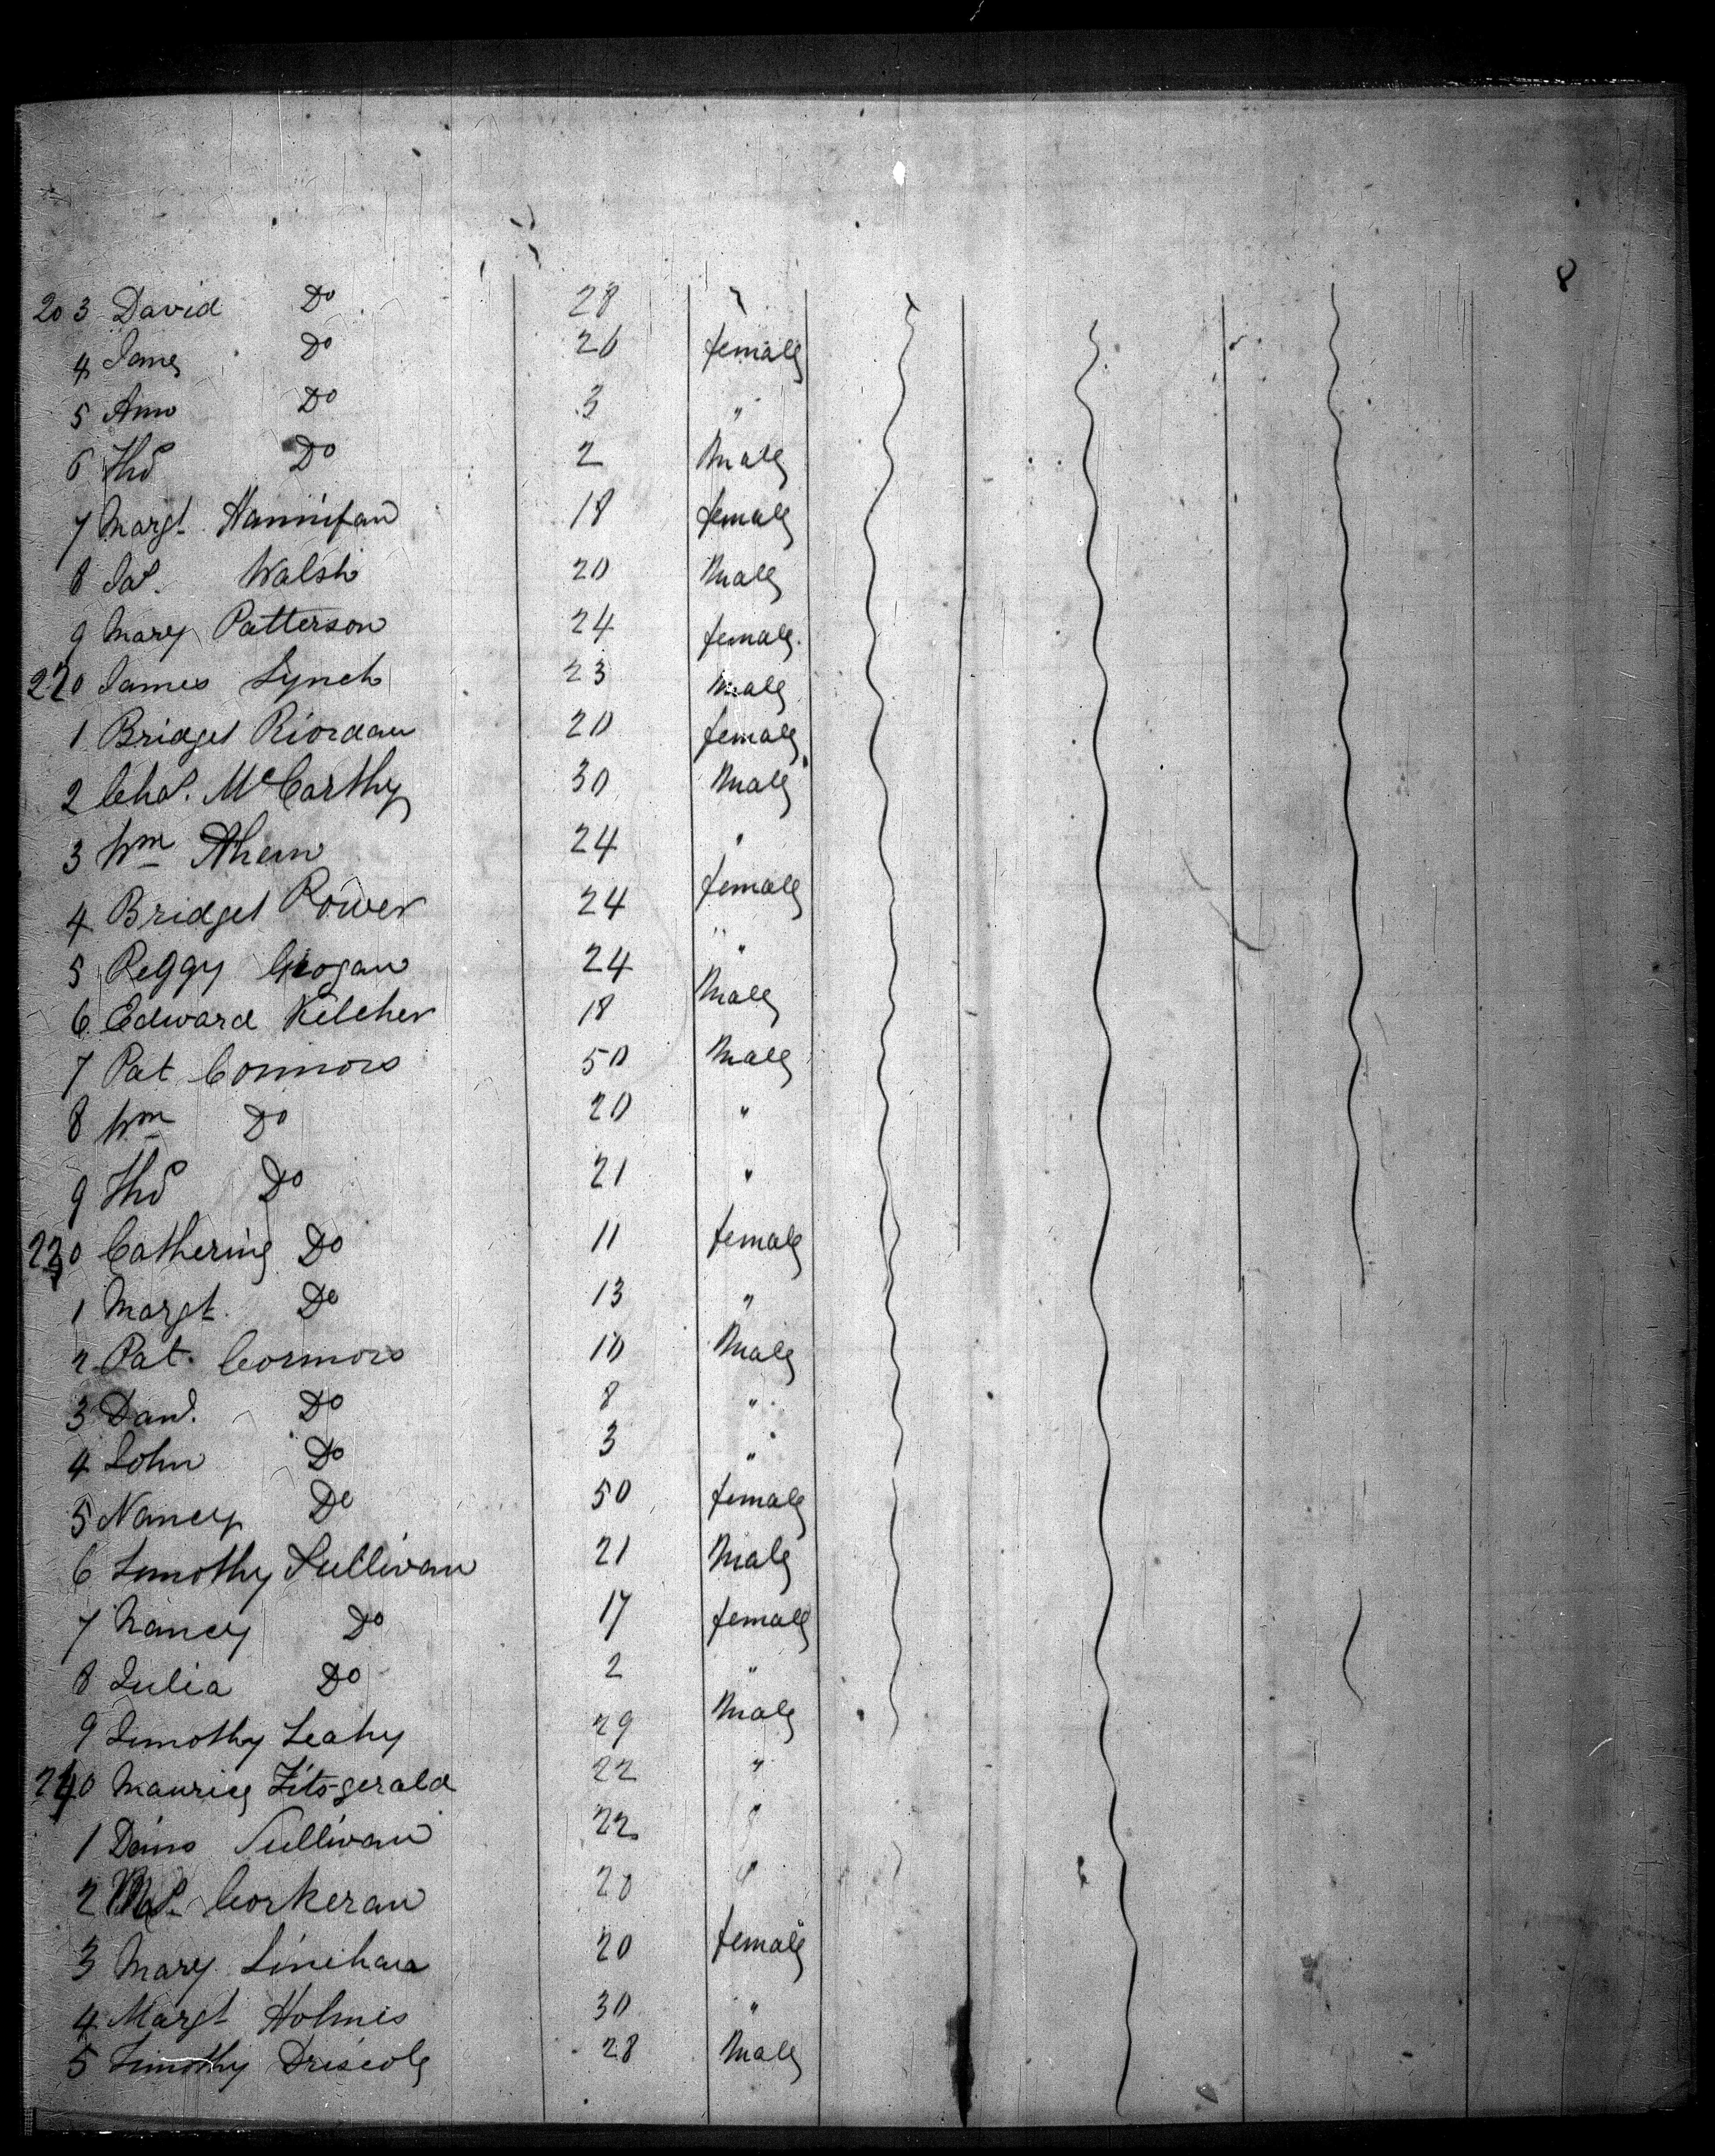 8
203 David Do 28 "
4 Jane Do 26 female
5 Ann Do 3 "
6 Thos Do 2 Male
7 Margt. Hannifan 18 female
8 Jas. Walsh 20 Male
9 Mary Patterson 24 female
220 James Lynch 23 Male
1 Bridget Riordan 20 female
2 Chas. McCarthy 30 Male
3 Wm Ahern 24 "
4 Bridget Power 24 female
5 Peggy Grogan 24 "
6 Edward Kelcher 18 Male
7 Pat Connors 50 Male
8 Wm Do 20 "
9 Thos Do 21 "
230 Catherine Do 11 female
1 Margt. Do 13 "
2 Pat. Connors 10 Male
3 Danl. Do 8 "
4 John Do 3 "
5 Nancy Do 50 female
6 Timothy Sullivan 21 Male
7 Nancy Do 17 female
8 Julia Do 2 "
9 Timothy Leahy 29 Male
240 Maurice Fitzgerald 22 "
1 Sullivan 22 "
2 Corkeran 20 "
3 Mary Linehan 20 female
4 Margt Holmes 30 "
5 Timothy Driscole 28 Male